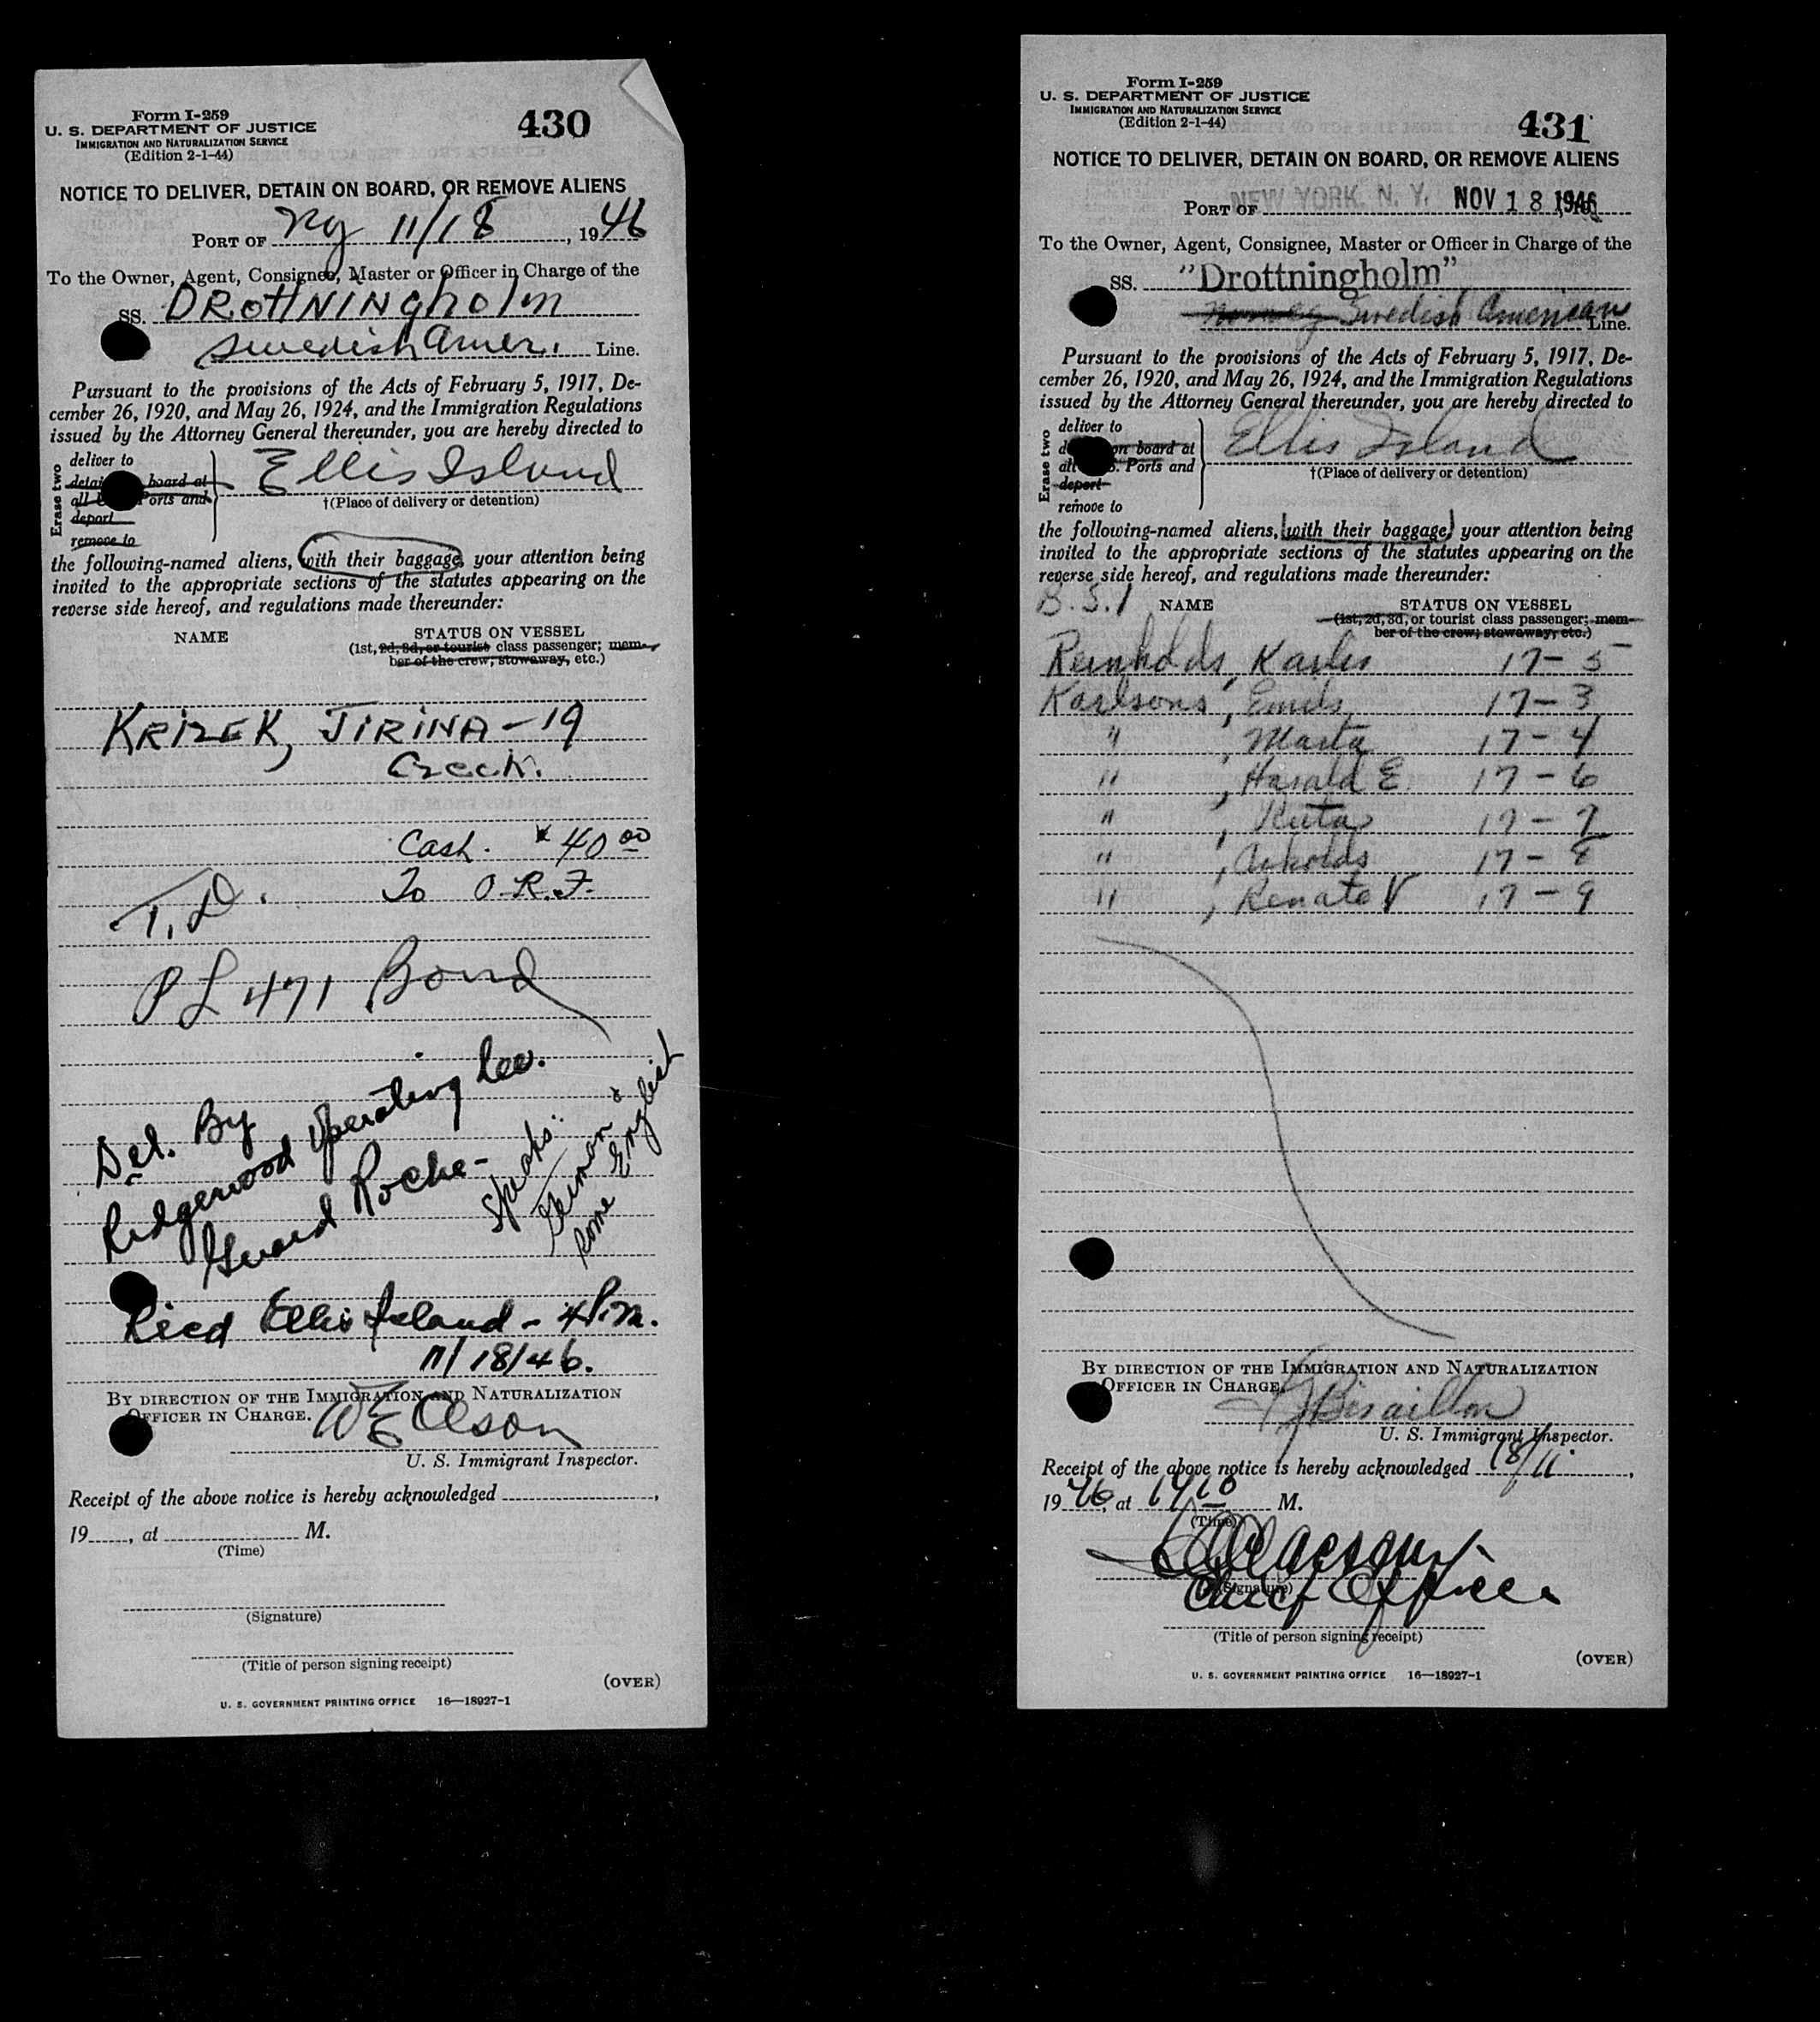 Form I-259
U. S. DEPARTMENT OF JUSTICE
IMMIGRATION AND NATURALIZATION SERVICE
(Edition 2-1-44)
430
NOTICE TO DELIVER, DETAIN ON BOARD, OR REMOVE ALIENS
PORT OF NY 11/18, 1946
To the Owner, Agent, Consignee, Master or Officer in Charge of the
SS. DROTTNINGholm
Swedish Amer. Line.
Pursuant to the provisions of the Acts of February 5, 1917, De-
cember 26, 1920, and May 26, 1924, and the Immigration Regulations
issued by the Attorney General thereunder, you are hereby directed to
Erase two
deliver to
board at
Ports and
deport
remove to
Ellis Island
†(Place of delivery or detention)
the following-named aliens, with their baggage, your attention being
invited to the appropriate sections of the statutes appearing on the
reverse side hereof, and regulations made thereunder:
NAME
STATUS ON VESSEL
(1st, 2d, 3d, or tourist class passenger; mem-
ber of the crew; stowaway, etc.)
KRIZEK, JIRINA - 19
Czech.
Cash. $40.00
T.D. To O.R.F.
PL 471 Bond
Del. By
Ridgewood Operating
Guard Roche -
Speaks:
German &
some English
Recd Ellis Island - 4 P.m.
11/18/46.
BY DIRECTION OF THE IMMIGRATION AND NATURALIZATION
OFFICER IN CHARGE.
W E Olson
U. S. Immigrant Inspector.
Receipt of the above notice is hereby acknowledged ,
19 , at M.
(Time)
(Signature)
(Title of person signing receipt)
(OVER)
U. S. GOVERNMENT PRINTING OFFICE 16—18927-1
Form I-259
U. S. DEPARTMENT OF JUSTICE
IMMIGRATION AND NATURALIZATION SERVICE
(Edition 2-1-44)
431
NOTICE TO DELIVER, DETAIN ON BOARD, OR REMOVE ALIENS
PORT OF NEW YORK, N. Y. NOV 18 1946
To the Owner, Agent, Consignee, Master or Officer in Charge of the
SS. "Drottningholm"
Swedish American Line.
Pursuant to the provisions of the Acts of February 5, 1917, De-
cember 26, 1920, and May 26, 1924, and the Immigration Regulations
issued by the Attorney General thereunder, you are hereby directed to
Erase two
deliver to
on board at
Ports and
deport
remove to
Ellis Island
†(Place of delivery or detention)
the following-named aliens, with their baggage, your attention being
invited to the appropriate sections of the statutes appearing on the
reverse side hereof, and regulations made thereunder:
B.S.I
NAME
STATUS ON VESSEL
(1st, 2d, 3d, or tourist class passenger; mem-
ber of the crew; stowaway, etc.)
Reinholds, Karlis 17 - 5
Karlsons, Emils 17 - 3
" , Marta 17 - 4
" , Harald E. 17 - 6
" , Ruta 17 - 7
" , 17 - 8
" , Renate V 17 - 9
BY DIRECTION OF THE IMMIGRATION AND NATURALIZATION
OFFICER IN CHARGE.
Bisaillon
U. S. Immigrant Inspector.
Receipt of the above notice is hereby acknowledged 18/11,
1946, at 1410 M.
(Time)
(Signature)
Chief Officer
(Title of person signing receipt)
(OVER)
U. S. GOVERNMENT PRINTING OFFICE 16—18927-1